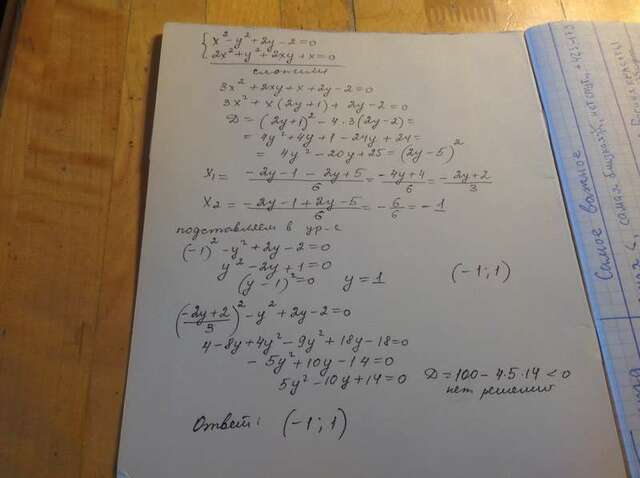 x² - y² + 2y - 2 = 0
2x² + y² + 2xy + x = 0
сложили
3x² + 2xy + x + 2y - 2 = 0
3x² + x(2y+1) + 2y - 2 = 0
D = (2y+1)² - 4·3(2y-2) =
= 4y² + 4y + 1 - 24y + 24 =
= 4y² - 20y + 25 = (2y-5)²
x₁ = (-2y - 1 - 2y + 5)/6 = (-4y+4)/6 = (-2y+2)/3
x₂ = (-2y - 1 + 2y - 5)/6 = -6/6 = -1
подставляем в ур-е
(-1)² - y² + 2y - 2 = 0
y² - 2y + 1 = 0
(y-1)² = 0 y = 1 (-1; 1)
((-2y+2)/3)² - y² + 2y - 2 = 0
4 - 8y + 4y² - 9y² + 18y - 18 = 0
- 5y² + 10y - 14 = 0
5y² - 10y + 14 = 0 D = 100 - 4·5·14 < 0
нет решений
Ответ: (-1; 1)
Самое важное